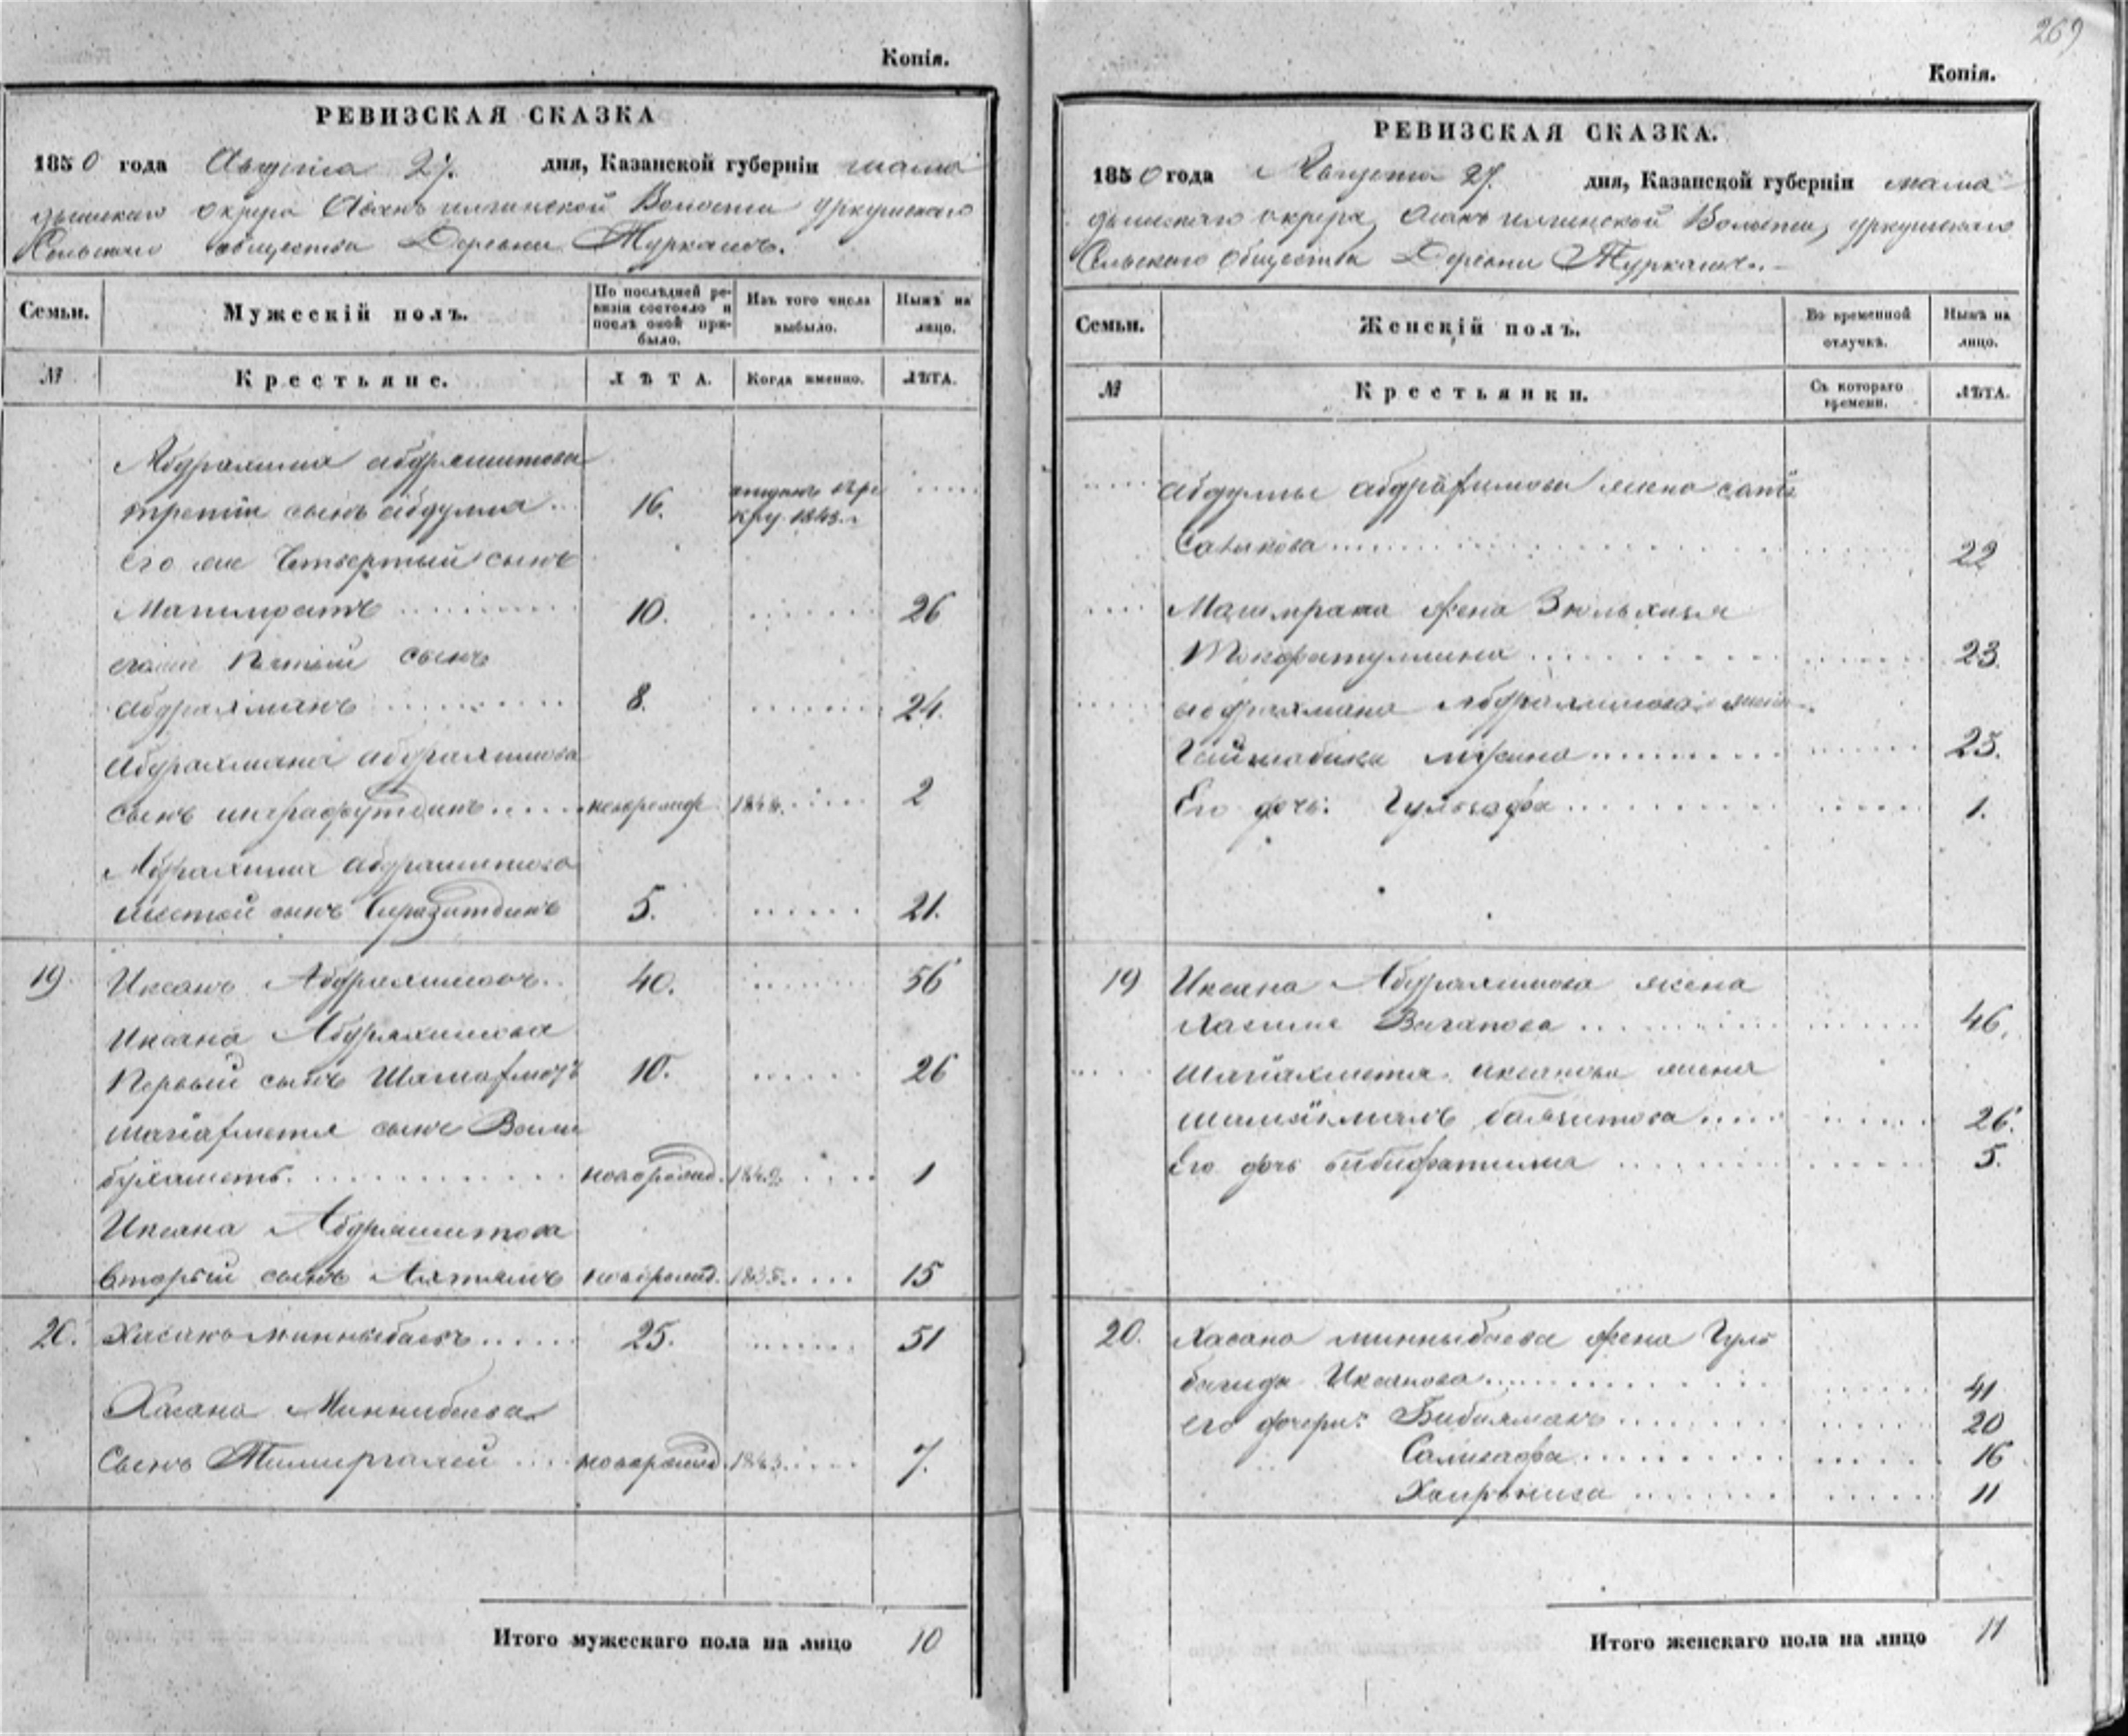 269
Копія.
РЕВИЗСКАЯ СКАЗКА
1850 года Августа 27. дня, Казанской губерніи мама
дышскаго округа Асанъ илгинской Волости уркушскаго
Сельскаго общества Деревни Туркашъ.
Семьи.
Мужескій полъ.
По послѣдней ре-
визіи состояло и
послѣ оной при-
было.
Изъ того числа
выбыло.
Нынѣ на
лицо.
№
Крестьяне.
ЛѢТА.
Когда именно.
ЛѢТА.
Абдрахима абдряшитова
третій сынъ абдулла 16. отданъ въ ре
кру. 1843.
его же Четвертый сынъ
10. 26
егоже Пятый сынъ
абдрахманъ 8. 24.
Абдрахмана абдрахимова
сынъ шарафутдинъ новорожд. 1848. 2
Абдрахима абдрашитова
шестой сынъ Сиразитдинъ 5. 21.
19. Иксанъ Абдрахимовъ 40. 56
Иксана Абдряхимова
Первый сынъ 10. 26
шагіахметя сынъ Вали
новорожд. 1849. 1
Иксана Абдряшитова
Вторый сынъ Ахтямъ новорожд. 1835. 15
20. Хасанъ миннибаевъ 25. 51
Хасана Миннибаева
Сынъ Тимиргалей новорожд. 1843. 7.
Итого мужескаго пола на лицо 10
Копія.
РЕВИЗСКАЯ СКАЗКА.
1850 года Августа 27. дня, Казанской губерніи мама
дышскаго округа, Асанъ илгинской Волости, уркушскаго
Сельскаго Общества Деревни Туркашъ.
Семьи.
Женскій полъ.
Во временной
отлучкѣ.
Нынѣ на
лицо.
№
Крестьянки.
Съ котораго
времени.
ЛѢТА.
абдуллы абдрахимова жена
22
жена Зюльхиья
23.
абдрахмана Абдрахимова жена
25.
Его дочь: Гульсафа 1.
19 Иксана Абдрахимова жена
Вагапова 46.
шагіахметя иксанова жена
26.
Его дочь бибифатима 5.
20. Хасана минныбаева жена Гуль
Иксанова 41
его дочери: Бибиямалъ 20
Салисафа 16
11
Итого женскаго пола на лицо 11